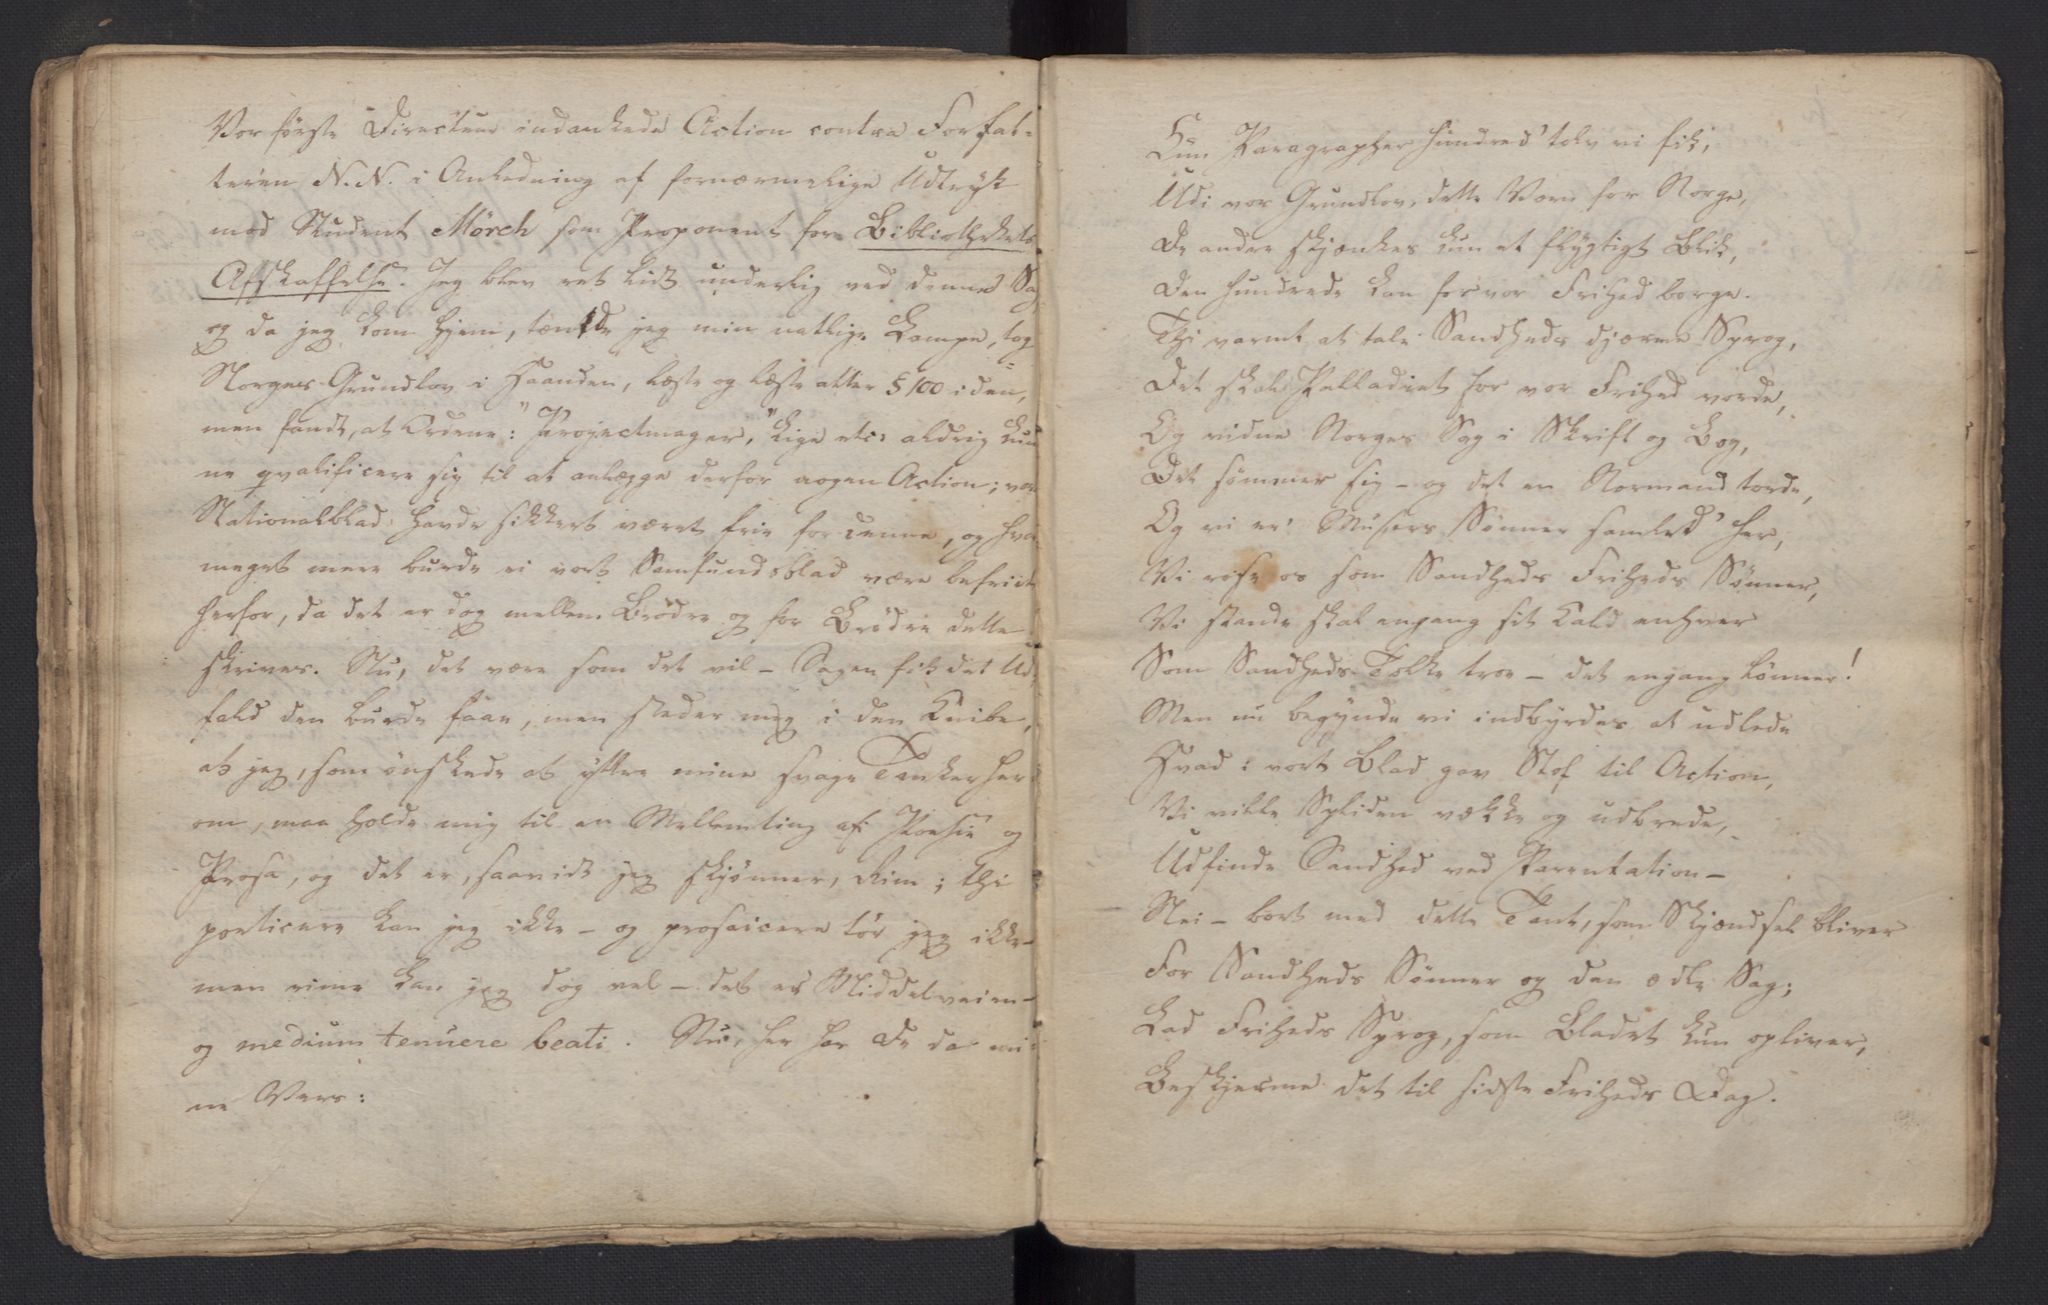 Vor første Directeur indankede Action contra Forfat-
teren N.N. i Anledning af fornærmelige Udtryk
mod Student Mörch som Proponent for Bibliothekets
Afskaffelse. Jeg blev ret lidt underlig ved denne Sag
og da jeg kom hjem, tændte jeg min natlige Lampe, tog
Norges Grundlov i Haanden, læste og læste atter § 100 i den,
men fandt, at Ordene: "Projectmager," Lige etc: aldrig kun
ne qvalificere sig til at anlægge derfor nogen Action; vore
Nationalblad havde sikkert været frie for denne, og hvor
meget mere burde ei vort Samfundsblad være befriet
herfor, da det er dog mellem Brödre og for Brödre dette
skrives. Nu, det være som det vil – Sagen fik det Ud-
fald den burde faae, men steder mig i den Knibe,
at jeg, som ønskede at yttre mine svage Tanker her
om, maa holde mig til en Mellemting af Poesie og
Prosa, og det er, saavidt jeg skjønner, Rim; thi
poeticere kan jeg ikke – og prosaicere tør jeg ikke –
men rime kan jeg dog vel – det er Middelveien –
og medium tenuere beati. Nu, her har De da mi-
ne Vers:
Kun Paragrapher hundred' tolv vi fik,
Udi vor Grundlov, dette Værn for Norge,
De andre skjænkes kun et flygtigt Blik,
Den hundrede kan for vor Frihed borge.
Thi varmt at tale Sandheds djærve Sprog,
Det skal Palladiet for vor Frihed vorde,
Og vidne Norges Sag i Skrift og Bog,
Det sømmer sig – og det en Normand torde,
Og vi er' Musers Sønner samled' her,
Vi rose os som Sandheds Friheds Sønner,
Vi stande skal engang sit Kald enhver
Som Sandheds Tolke troe – det engang lønner!
Men nu begynde vi indbyrdes at udlede
Hvad i vort Blad gav Stof til Action,
Vi ville Spliden vække og udbrede,
Udfinde Sandhed ved Parentation –
Nei – bort med dette Tant, som Skjændsel bliver
For Sandheds Sønner og den ædle Sag;
Lad Friheds Sprog, som Bladet kun opliver,
Beskjerme det til sidste Friheds Dag.